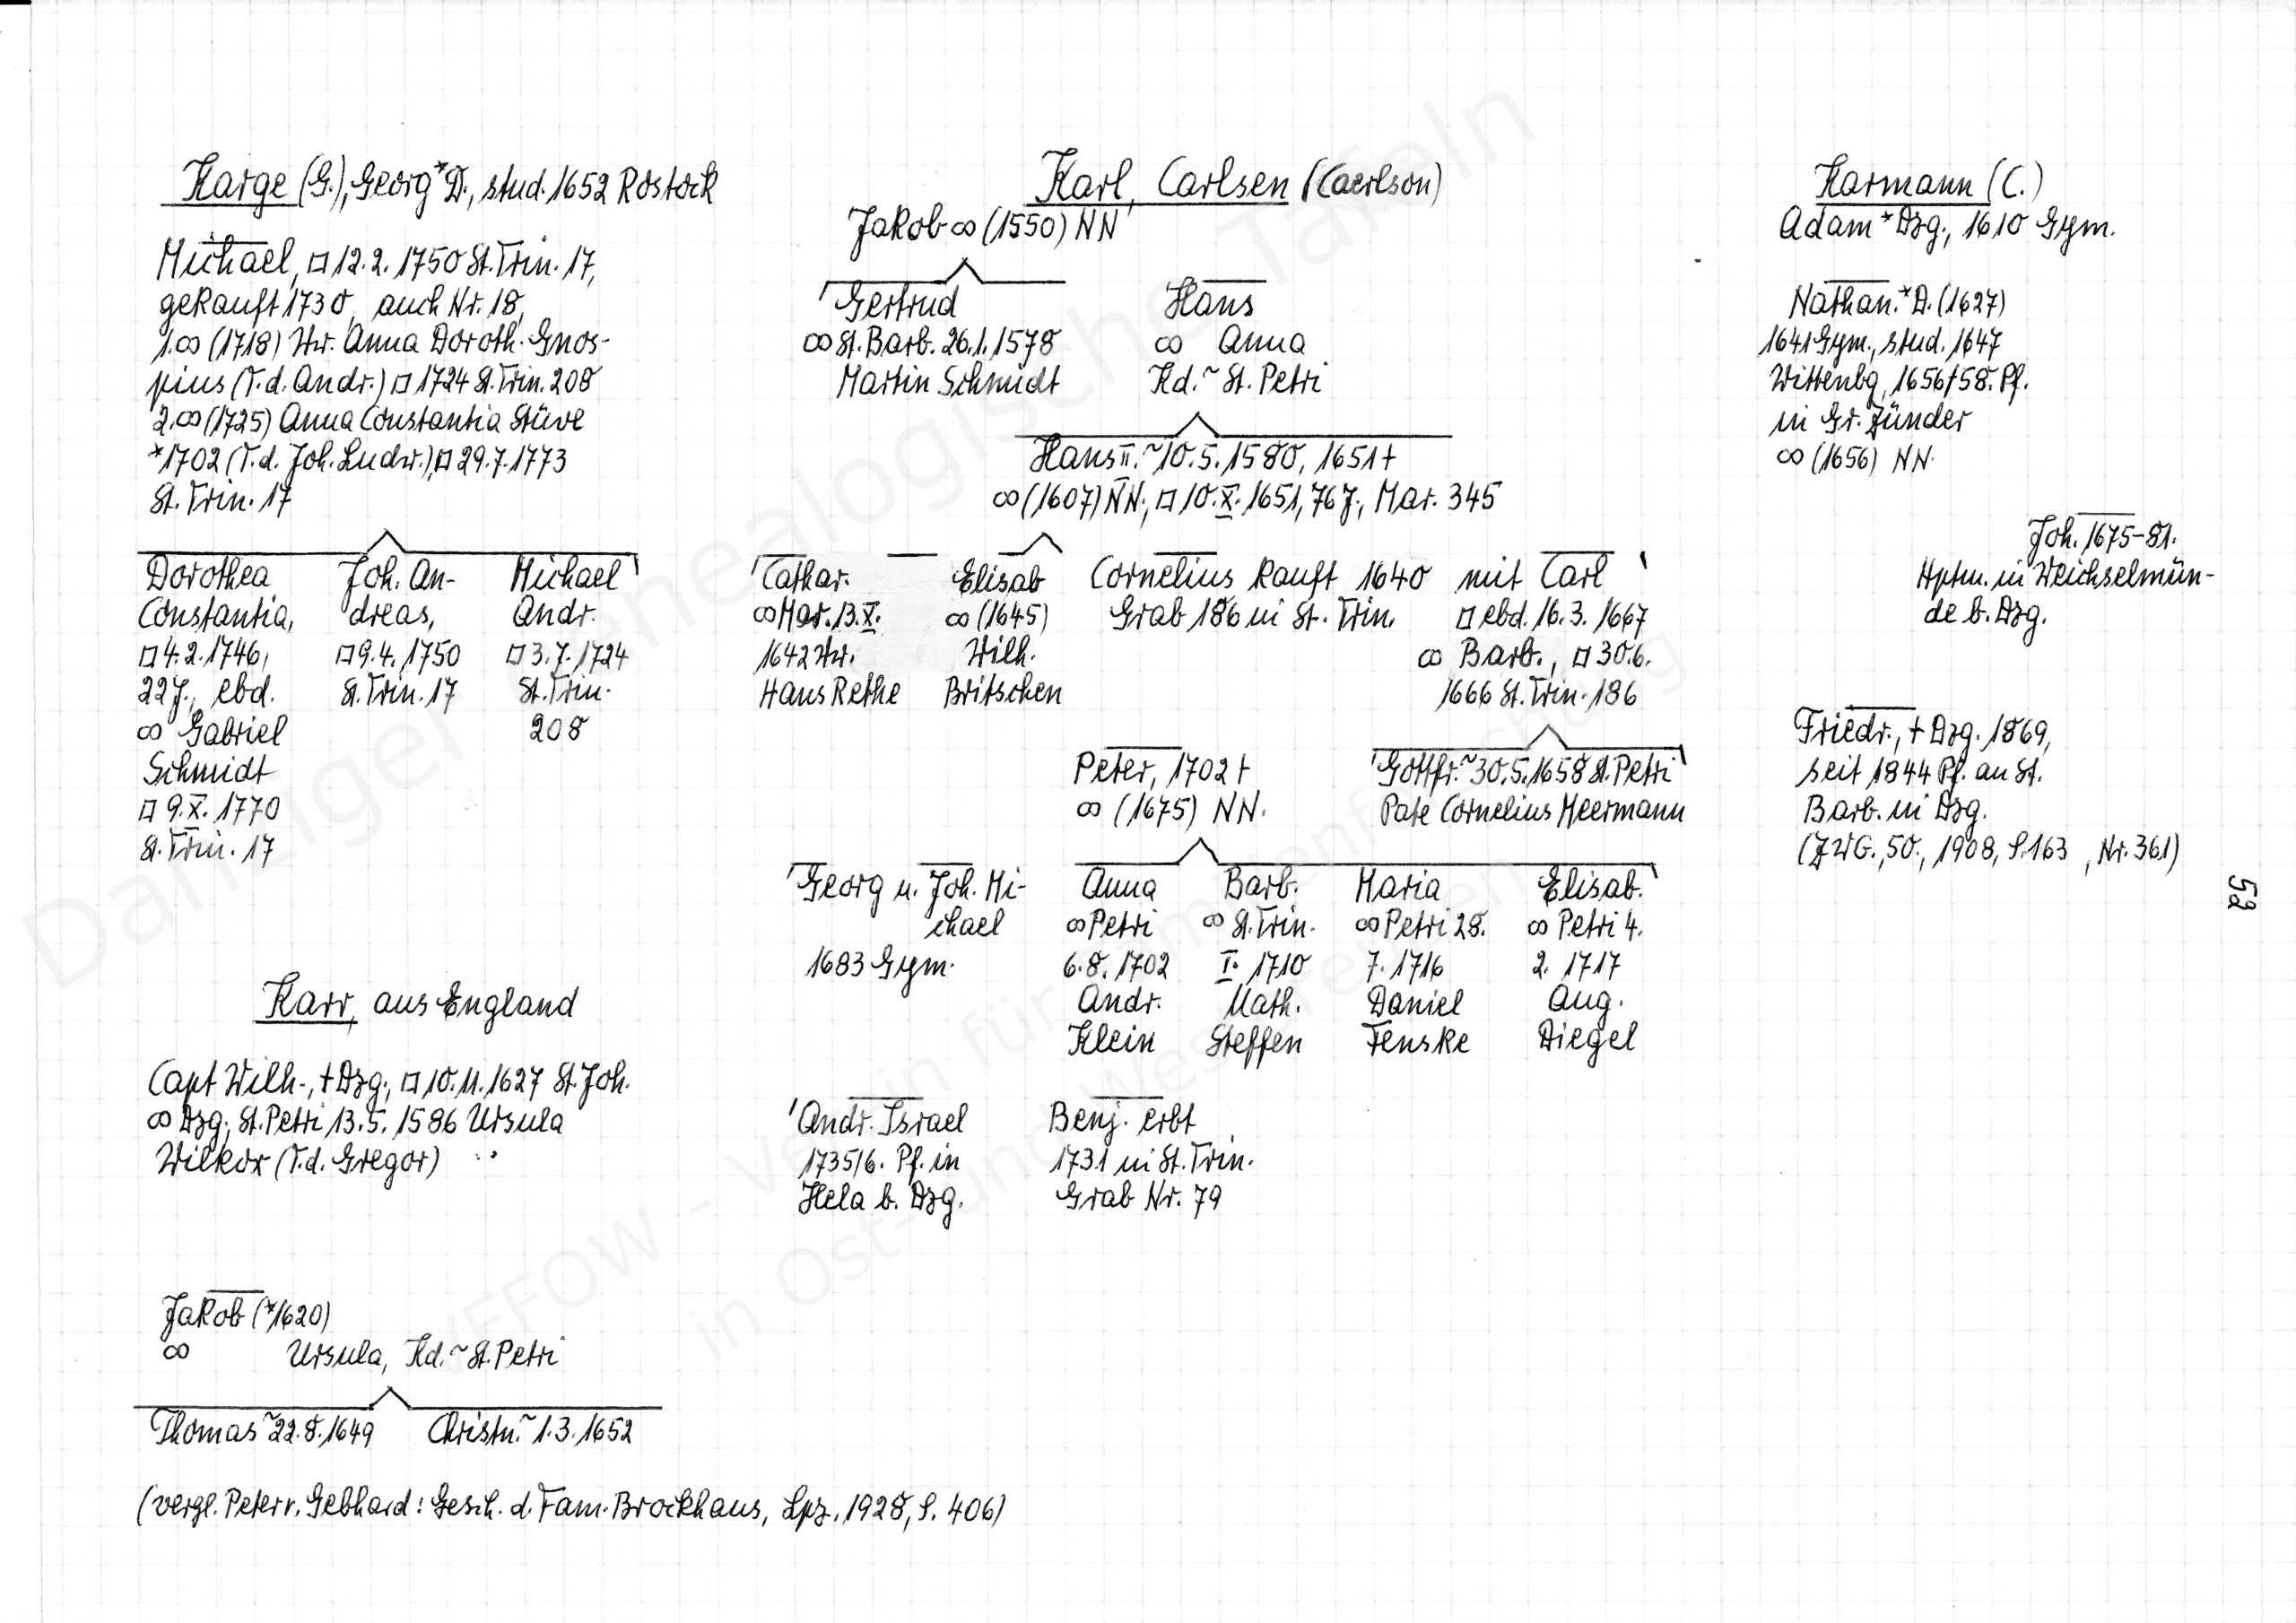 Karge (G.), Georg *D., stud. 1652 Rostock
Michael, □ 12.2.1750 St. Trin. 17,
gekauft 1730, auch Nr. 18,
1.∞ (1718) Wr. Anna Doroth. Gnos-
pius (T.d. Andr.) □ 1724 St. Trin. 208
2.∞ (1725) Anna Constantia Stüve
*1702 (T.d. Joh. Ludw.), □ 29.7.1773
St. Trin. 17
Dorothea
Constantia,
□ 4.2.1746,
22J., ebd.
∞ Gabriel
Schmidt
□ 9.X.1770
St. Trin. 17
Joh. An-
dreas,
□ 9.4.1750
St. Trin. 17
Michael
Andr.
□ 3.7.1724
St. Trin.
208
Karr, aus England
Capt Wilh., † Dzg., □ 10.11.1627 St. Joh.
∞ Dzg., St. Petri 13.5.1586 Ursula
Wilkox (T.d. Gregor)
Jakob (*1620)
∞ Ursula, Kd. ~ St. Petri
Thomas ~ 22.8.1649 Christn. ~ 1.3.1652
(vergl. Peter v. Gebhard: Gesch. d. Fam. Brockhaus, Lpz. 1928, S. 406)
Karl, Carlsen (Caerlson)
Jakob ∞ (1550) NN
Gertrud
∞ St. Barb. 26.1.1578
Martin Schmidt
Hans
∞ Anna
Kd. ~ St. Petri
Hans II. ~ 10.5.1580, 1651 †
∞ (1607) NN., □ 10.X.1651, 76J., Mar. 345
Cathar.
∞ Mar. 13.X.
1642 Wr.
Hans Rethe
Elisab
∞ (1645)
Wilh.
Britschen
Cornelius kauft 1640 mit Carl
Grab 186 in St. Trin. □ ebd. 16.3.1667
∞ Barb., □ 30.6.
1666 St. Trin. 186
Peter, 1702 †
∞ (1675) NN.
Gottfr. ~ 30.5.1658 St. Petri
Pate Cornelius Meermann
Georg u. Joh. Mi-
chael
1683 Gym.
Anna
∞ Petri
6.8.1702
Andr.
Klein
Barb.
∞ St. Trin.
I. 1710
Math.
Steffen
Maria
∞ Petri 28.
7.1716
Daniel
Fenske
Elisab.
∞ Petri 4.
2.1717
Aug.
Diegel
Andr. Israel
1735/6. Pf. in
Hela b. Dzg.
Benj. erbt
1731 in St. Trin.
Grab Nr. 79
Karmann (C.)
Adam *Dzg., 1610 Gym.
Nathan. *D. (1627)
1641 Gym., stud. 1647
Wittenbg, 1656/58. Pf.
in Gr. Zünder
∞ (1656) NN.
Joh. 1675-81.
Hptm. in Weichselmün-
de b. Dzg.
Friedr., † Dzg. 1869,
seit 1844 Pf. an St.
Barb. in Dzg.
(ZWG., 50., 1908, S. 163, Nr. 361)
52
Danziger Genealogische Tafeln
VFFOW - Verein für Familienforschung
in Ost- und Westpreußen